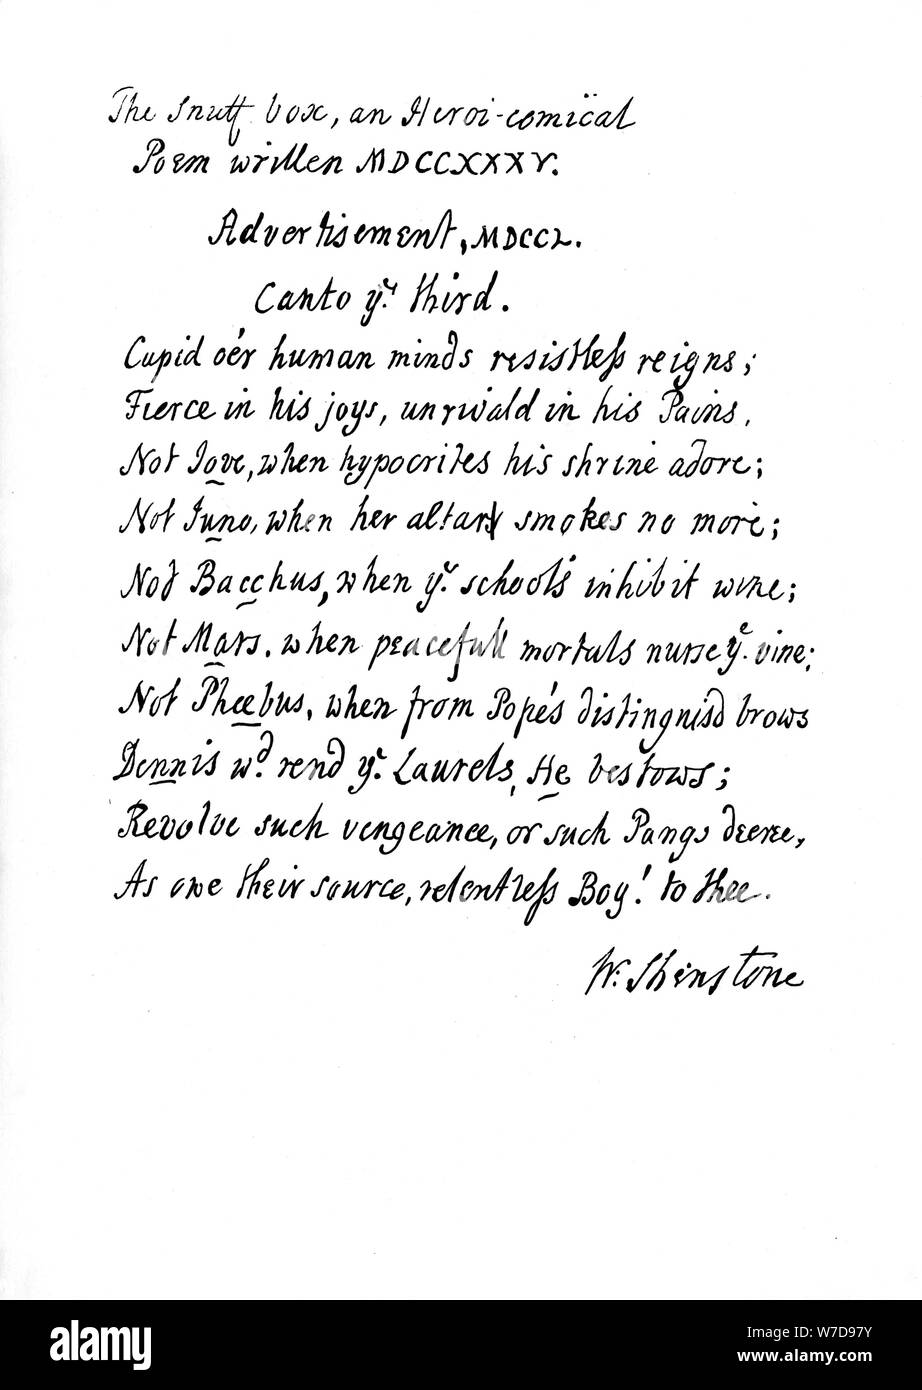 The Snuff box, an Heroi-comïcal
Poem written MDCCXXXV.
Advertisement, MDCCL.
Canto yᵉ. third.
Cupid o'er human minds resistless reigns;
Fierce in his joys, unrivald in his Pains,
Not Jove, when hypocrites his shrine adore;
Not Juno, when her altar smokes no more;
Not Bacchus, when yᵉ. schools inhibit wine;
Not Mars, when peacefull mortals nurse yᵉ. vine;
Not Phœbus, when from Pope's distinguisd brows
Dennis wᵈ. rend yᵉ. Laurels, He bestows;
Revolve such vengeance, or such Pangs decree,
As owe their source, relentless Boy! to thee.
W. Shenstone
alamy
a
alamy
Image ID: W7D97Y
www.alamy.com